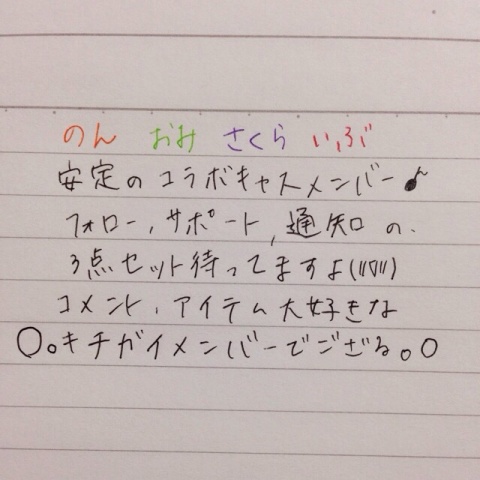 のん おみ さくら いぶ
安定のコラボキャスメンバー♪
フォロー,サポート,通知の.
3点セット待ってますよ(〃▽〃)
コメント,アイテム大好きな
〇。キチガイメンバーでござる。〇